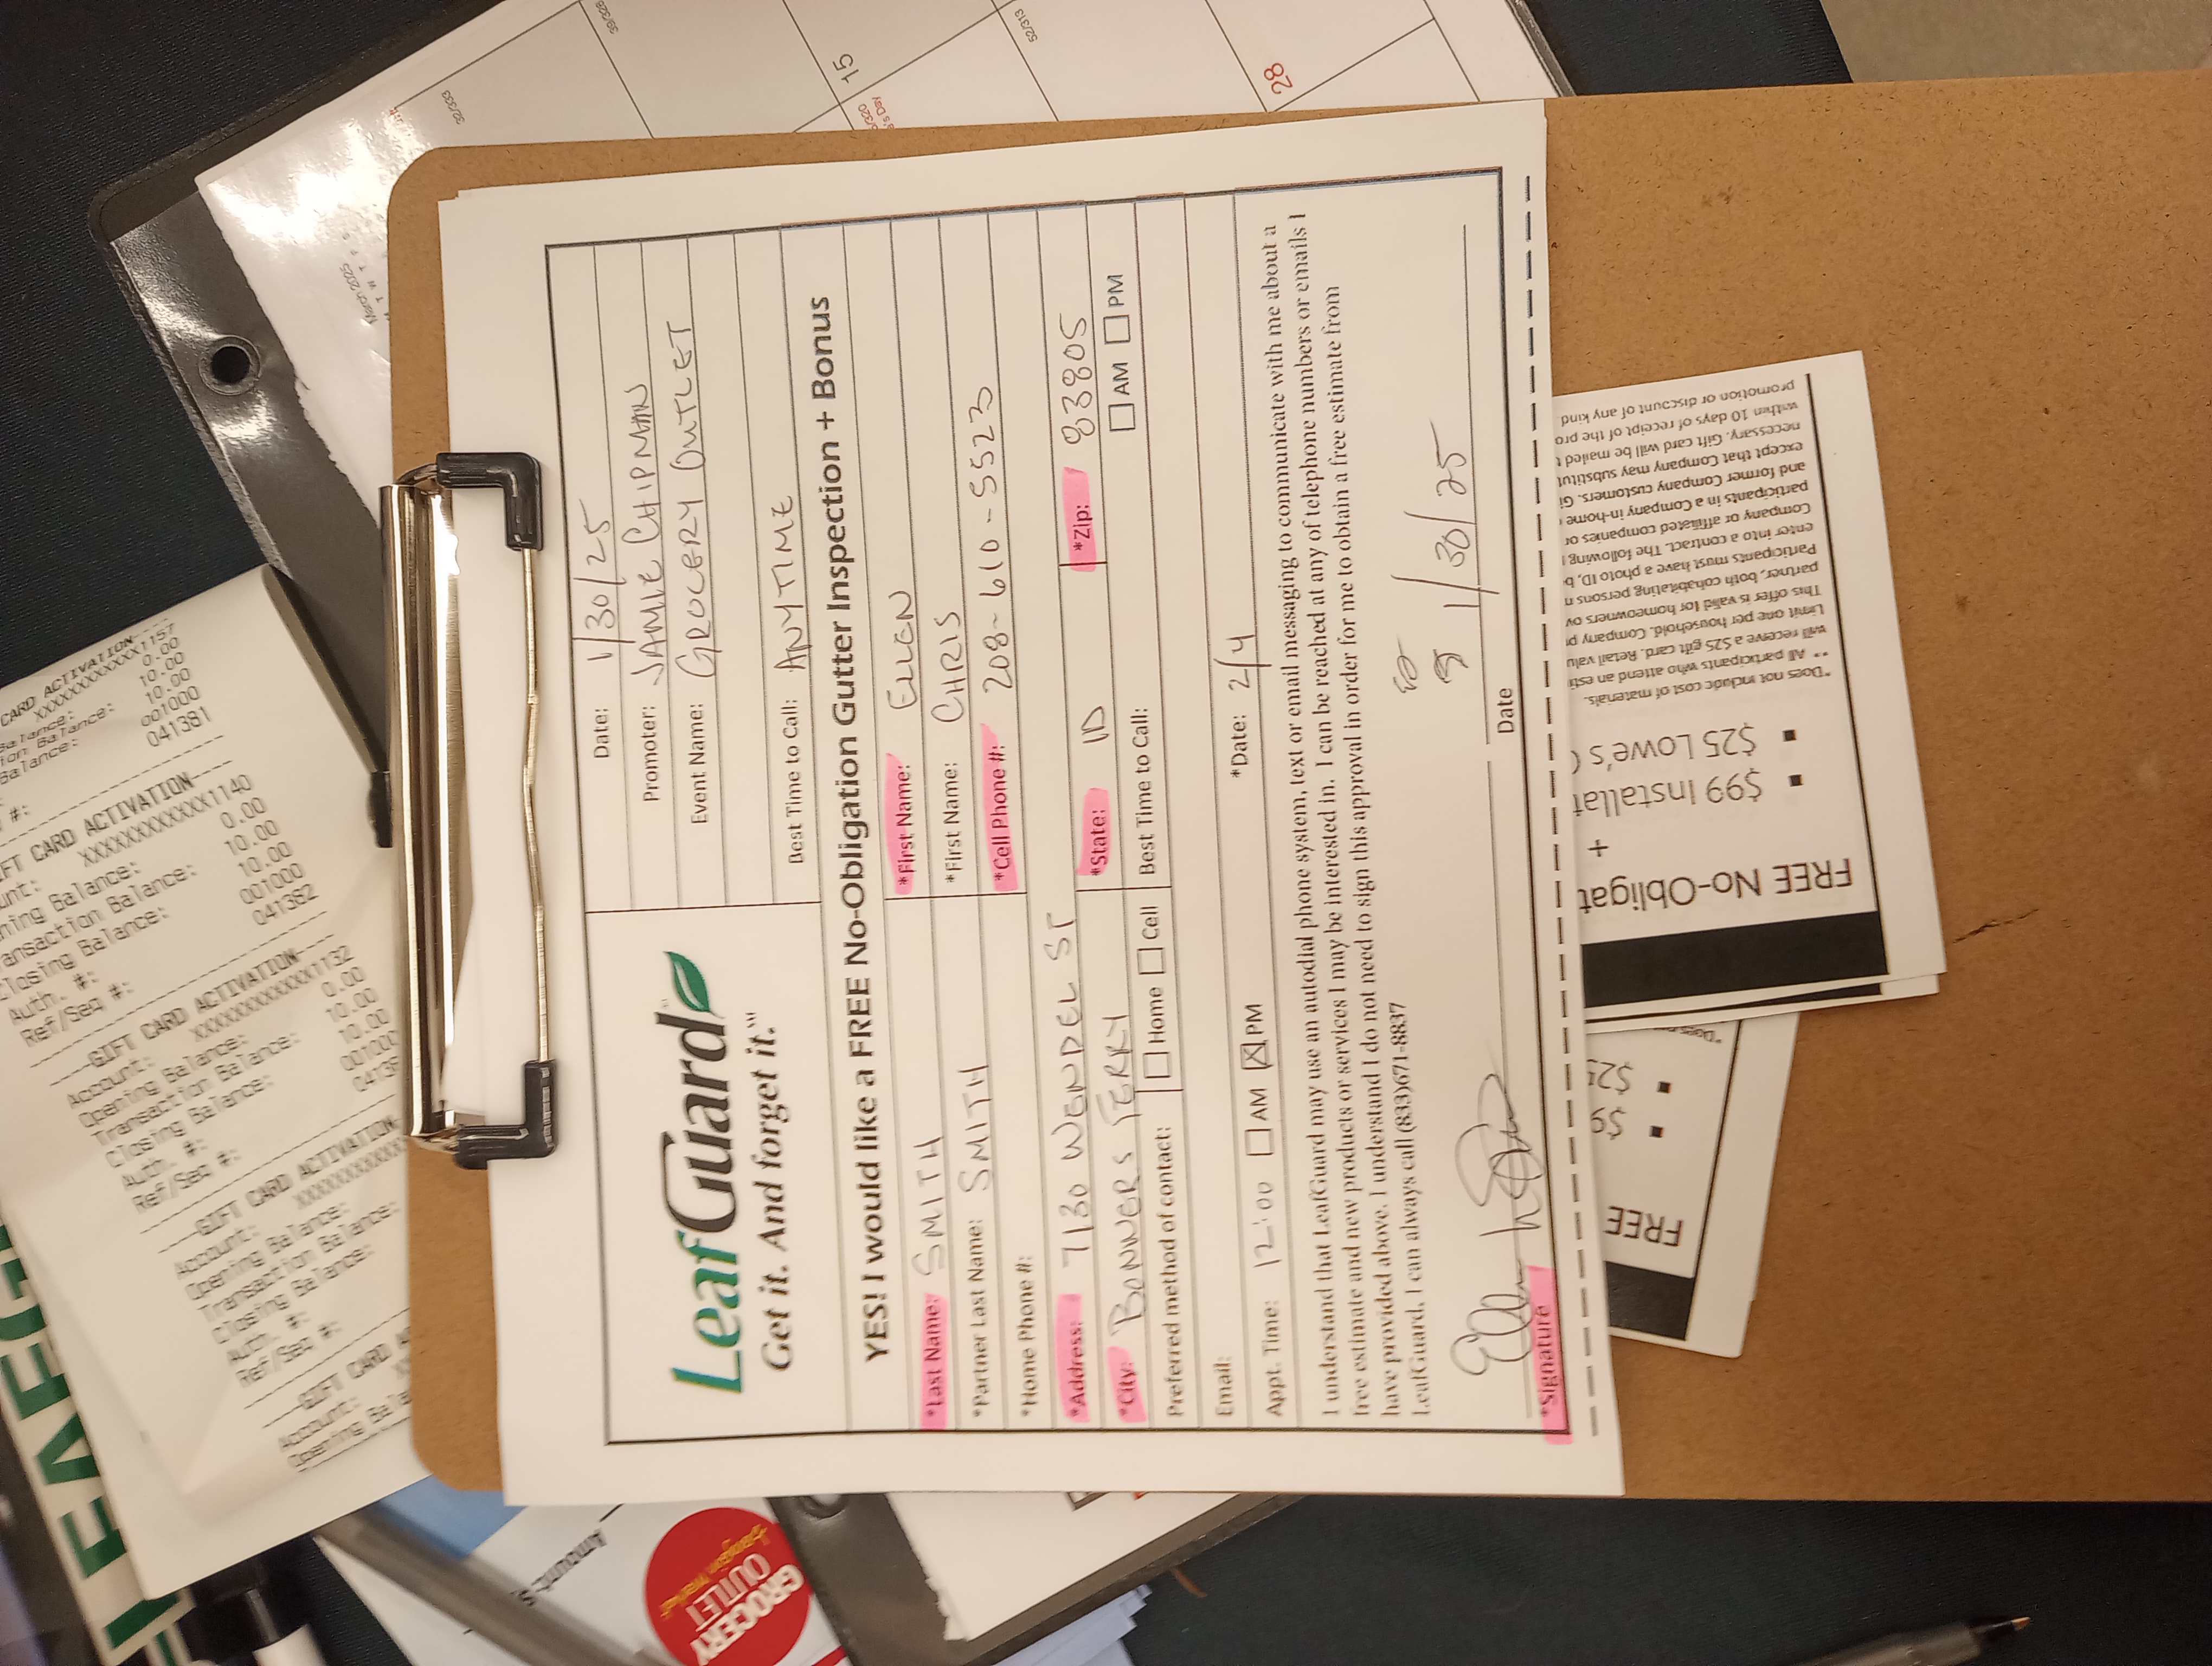 LEAFG
CARD ACTIVATION
XXXXXXXXXXXX1157
Balance: 0.00
Balance: 10.00
10.00
001000
#: 041381
GIFT CARD ACTIVATION
XXXXXXXXXXXX1140
Balance: 0.00
Transaction Balance: 10.00
Closing Balance: 10.00
Auth. #: 001000
Ref/Seq #: 041382
----GIFT CARD ACTIVATION----
Account: XXXXXXXXXXXX1132
Opening Balance: 0.00
Transaction Balance: 10.00
Closing Balance: 10.00
Auth. #: 001000
Ref/Seq #: 04138
----GIFT CARD ACTIVATION
Account:
Opening Balance:
Transaction Balance:
Closing Balance:
Auth. #:
Ref/Seq #:
----GIFT CARD
Account:
Opening Bala
March 2025
32/333
39/326
15
52/313
28
Amount: $
GROCERY
OUTLET
bargain market
LeafGuard
Get it. And forget it.™
Date: 1/30/25
Promoter: JAMIE CHIPMAN
Event Name: GROCERY OUTLET
Best Time to Call: ANYTIME
YES! I would like a FREE No-Obligation Gutter Inspection + Bonus
*Last Name: SMITH *First Name: ELLEN
*Partner Last Name: SMITH *First Name: CHRIS
*Home Phone #: *Cell Phone #: 208-610-5523
*Address: 7130 WENDEL ST
*City: BONNERS FERRY *State: ID *Zip: 83805
Preferred method of contact: Home Cell Best Time to Call: AM PM
Email:
Appt. Time: 12:00 AM PM *Date: 2/4
I understand that LeafGuard may use an autodial phone system, text or email messaging to communicate with me about a
free estimate and new products or services I may be interested in. I can be reached at any of telephone numbers or emails I
have provided above. I understand I do not need to sign this approval in order for me to obtain a free estimate from
LeafGuard, I can always call (833)671-8837
1/30/25
*Signature Date
FREE
$9
$25
FREE No-Obligat
+
$99 Installat
$25 Lowe's
*Does not include cost of materials.
** All participants who attend an esti
will receive a $25 gift card. Retail valu
Limit one per household. Company pr
This offer is valid for homeowners ov
partner, both cohabitating persons m
Participants must have a photo ID, b
enter into a contract. The following
Company or affiliated companies or
participants in a Company in-home
and former Company customers. Gi
except that Company may substitut
necessary. Gift card will be mailed t
within 10 days of receipt of the pro
promotion or discount of any kind